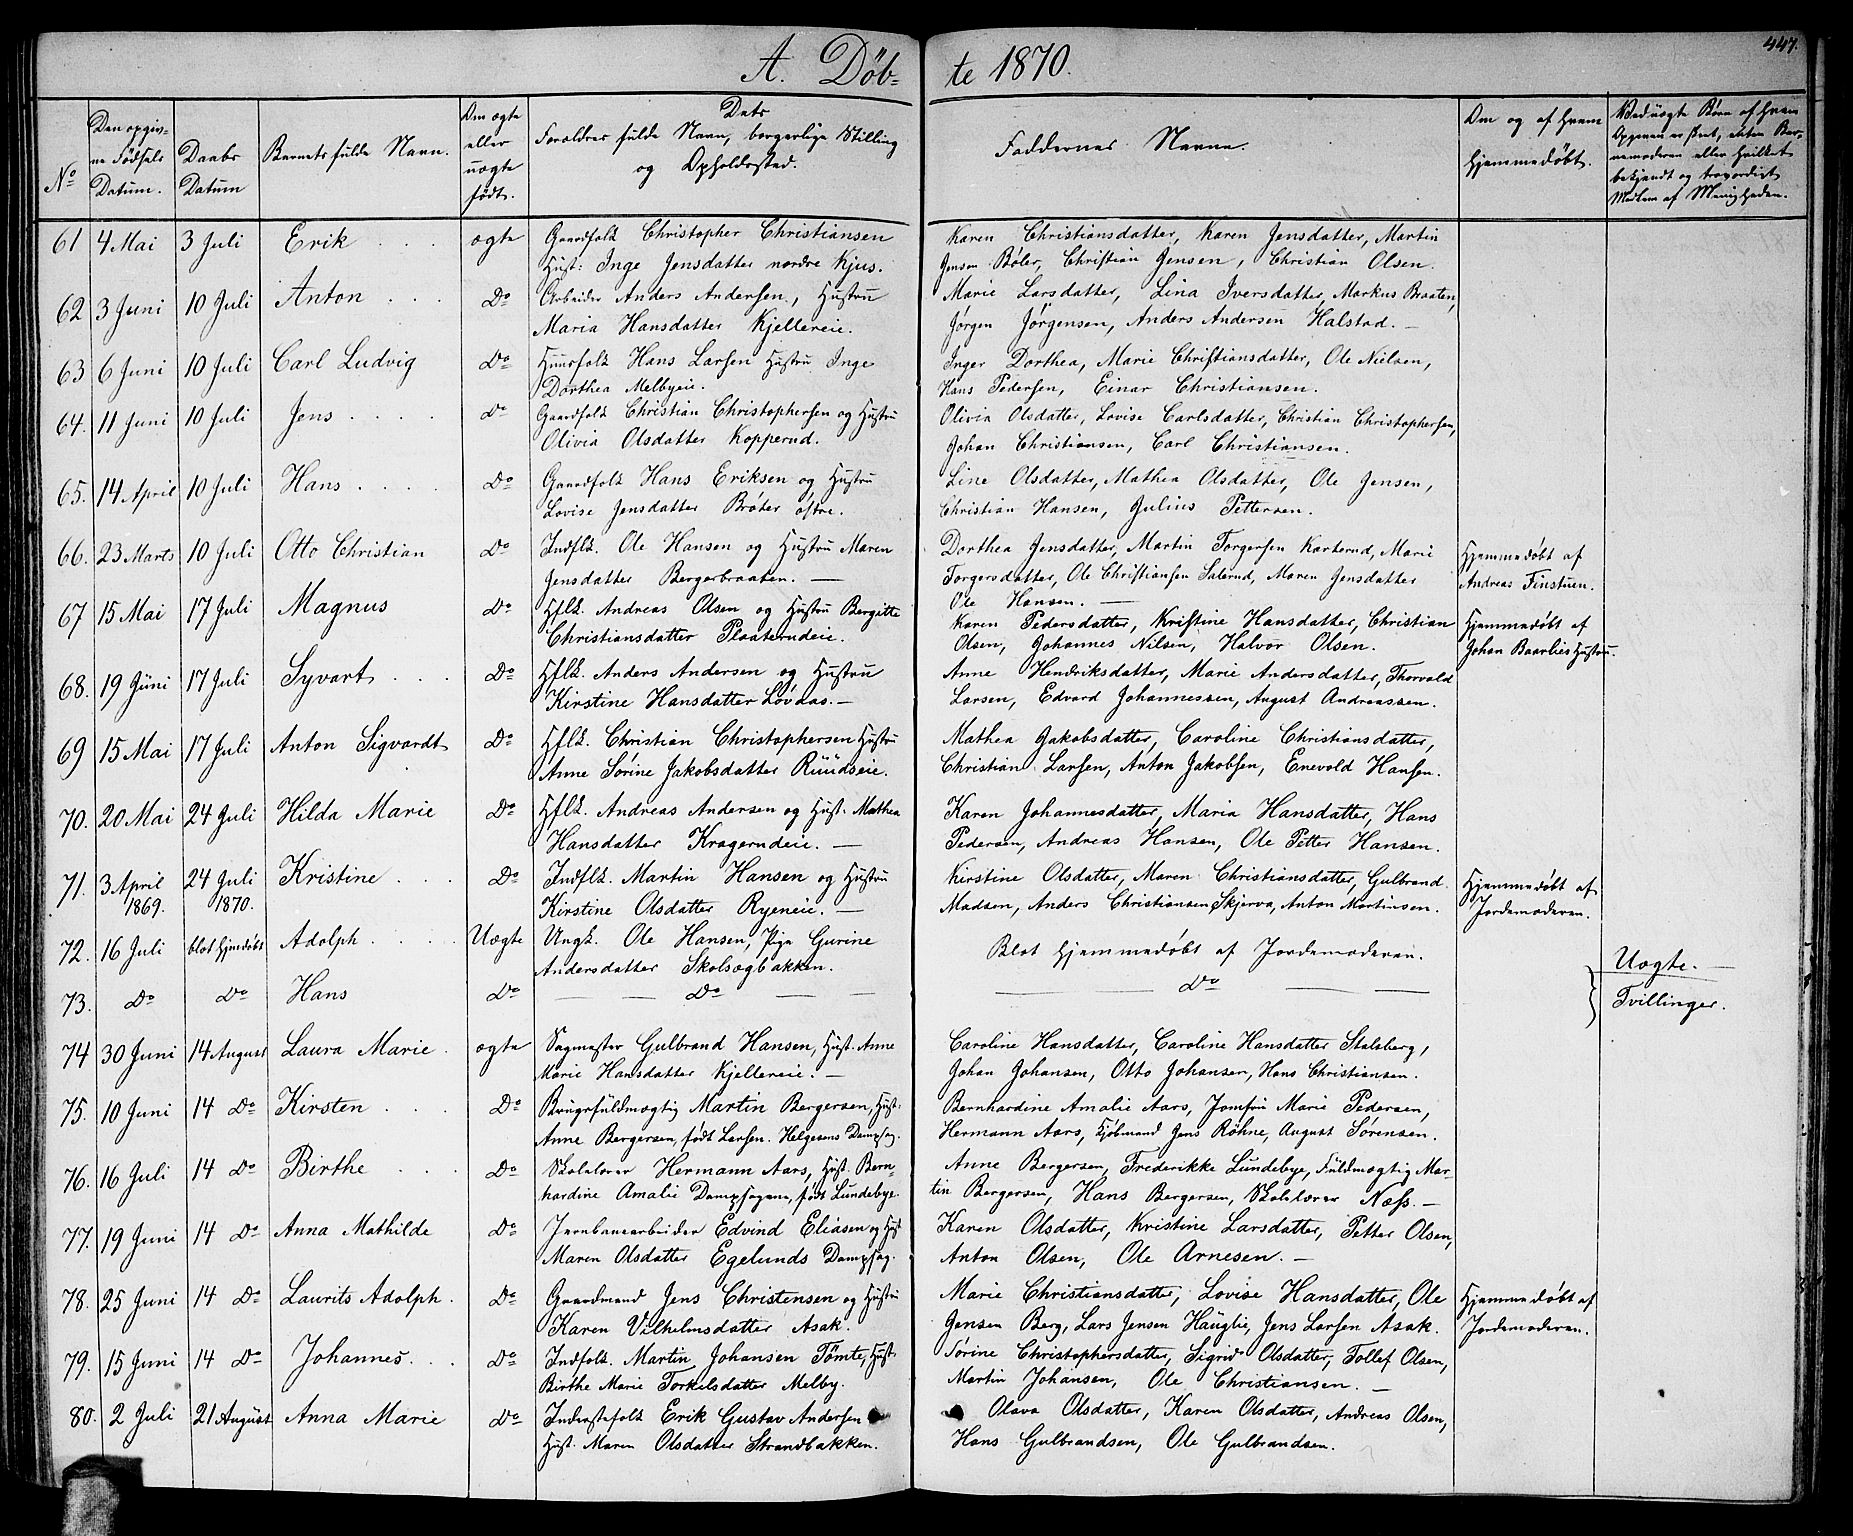 447.
A. Døb- te 1870.
No
Den opgiv-
ne Fødsels
Datum.
Daabs
Datum
Barnets fulde Navn.
Om ægte
eller
uægte
født.
Dets
Forældres fulde Navn, borgerlige Stilling
og Opholdssted.
Faddernes Navne.
Om og af Hvem
hjemmedøbt.
Ved uægte Børn af Hvem
Opgaven er skeet, enten Bar-
nemoderen eller hvilket
bekjendt og troværdigt
Medlem af Menigheden.
61 4 Mai 3 Juli Erik ægte Gaardfolk Christopher Christiansen Karen Christiansdatter, Karen Jensdatter, Martin
Hust: Inge Jensdatter nordre Kjus. Jensen Bøler, Christian Jensen, Christian Olsen.
62 3 Juni 10 Juli Anton Do Arbeider Anders Andersen, Hustru Marie Larsdatter, Lina Iversdatter, Markus Braaten,
Maria Hansdatter Kjellereie. Jørgen Jørgensen, Anders Andersen Halstad.
63 6 Juni 10 Juli Carl Ludvig Do Huusfolk Hans Larsen Hustru Inge Inger Dorthea, Marie Christiansdatter, Ole Nielsen,
Dorthea Melbyeie. Hans Pedersen, Einar Christiansen.
64. 11 Juni 10 Juli Jens Do Gaardfolk Christian Christophersen og Hustru Olivia Olsdatter, Lovise Carlsdatter, Christian Christophersen,
Olivia Olsdatter Kopperud. Johan Christiansen, Carl Christiansen.
65. 14 April 10 Juli Hans Do Gaardfolk Hans Eriksen og Hustru Line Olsdatter, Mathea Olsdatter, Ole Jensen,
Lovise Jensdatter Bröter østre. Christian Hansen, Julius Pettersen.
66. 23 Marts 10 Juli Otto Christian Do Indflk. Ole Hansen og Hustru Maren Dorthea Jensdatter, Martin Torgersen Karterud, Marie Hjemmedøbt af
Jensdatter Bergerbraaten. Torgersdatter, Ole Christiansen Salerud, Maren Jensdatter Andreas Finstuen.
Ole Hansen.
67 15 Mai 17 Juli Magnus Do Hflk. Andreas Olsen og Hustru Bergitte Karen Pedersdatter, Kristine Hansdatter, Christian Hjemmedøbt af
Christiansdatter Plaaterudeie. Olsen, Johannes Nilsen, Halvor Olsen. Johan Baarlies Hustru.
68. 19 Juni 17 Juli Syvart Do Hflk. Anders Andersen og Hustru Anne Hendriksdatter, Marie Andersdatter, Thorvald
Kirstine Hansdatter Løvdas. Larsen, Edvard Johannessen, August Andreassen.
69 15 Mai 17 Juli Anton Sigvardt Do Hflk. Christian Christophersen Hustru Mathea Jakobsdatter, Caroline Christiansdatter,
Anne Sørine Jakobsdatter Ruudseie. Christian Larsen, Anton Jakobsen, Enevold Hansen.
70. 20 Mai 24 Juli Hilda Marie Do Hflk. Andreas Andersen og Hust. Mathea Karen Johannesdatter, Maria Hansdatter, Hans
Hansdatter Kragerudeie. Pedersen, Andreas Hansen, Ole Petter Hansen.
71. 3 April 24 Juli Kristine Do Indflk. Martin Hansen og Hustru Kirstine Olsdatter, Maren Christiansdatter, Gulbrand Hjemmedøbt af
1869. 1870. Kirstine Olsdatter Ryeneie. Madsen, Anders Christiansen Skjerva, Anton Martinsen. Jordemoderen.
72. 16 Juli blot Hjmdøbt Adolph Uægte Ungk. Ole Hansen, Pige Gurine Blot hjemmedøbt af Jordemoderen.
Andersdatter Skolsegbakken. Uægte.
73. Do Do Hans Do Do Do Tvillinger.
74 30 Juni 14 August Laura Marie ægte Sagmester Gulbrand Hansen, Hust. Anne Caroline Hansdatter, Caroline Hansdatter Stalsberg,
Marie Hansdatter Kjellereie. Johan Johansen, Otto Johansen, Hans Christiansen.
75. 10 Juni 14 Do Kirsten Do Brugsfuldmægtig Martin Bergersen, Hust. Bernhardine Amalie Aars, Jomfru Marie Pedersen,
Anne Bergersen, født Larsen. Helgesens Dampsag. Hermann Aars, Kjøbmand Jens Röhne, August Sörensen.
76. 16 Juli 14 Do Birthe Do Skolelærer Hermann Aars, Hust. Bern- Anne Bergersen, Frederikke Lundebye, Fuldmægtig Mar-
hardine Amalie Dampsagene, født Lundebye. tin Bergersen, Hans Bergersen, Skolelærer Næss.
77. 19 Juni 14 Do Anna Mathilde Do Jernbanearbeider Edvind Eliasen og Hust Karen Olsdatter, Kristine Larsdatter, Petter Olsen,
Maren Olsdatter Egelunds Dampsag. Anton Olsen, Ole Arnesen.
78. 25 Juni 14 Do Laurits Adolph Do Gaardmand Jens Christensen og Hustru Marie Christiansdatter, Lovise Hansdatter, Ole Hjemmedøbt af
Karen Vilhelmsdatter Asak. Jensen Berg, Lars Jensen Hauglie, Jens Larsen Asak. Jordemoderen.
79. 15 Juni 14 Do Johannes Do Indfolk. Martin Johansen Tömte, Hust. Sörine Christophersdatter, Sigrid Olsdatter, Tollef Olsen,
Birthe Marie Torkelsdatter Melby. Martin Johansen, Ole Christiansen.
80. 2 Juli 21 August Anna Marie Do Inderstefolk Erik Gustav Andersen Olava Olsdatter, Karen Olsdatter, Andreas Olsen,
Hust. Maren Olsdatter Strandbakken. Hans Gulbrandsen, Ole Gulbrandsen.